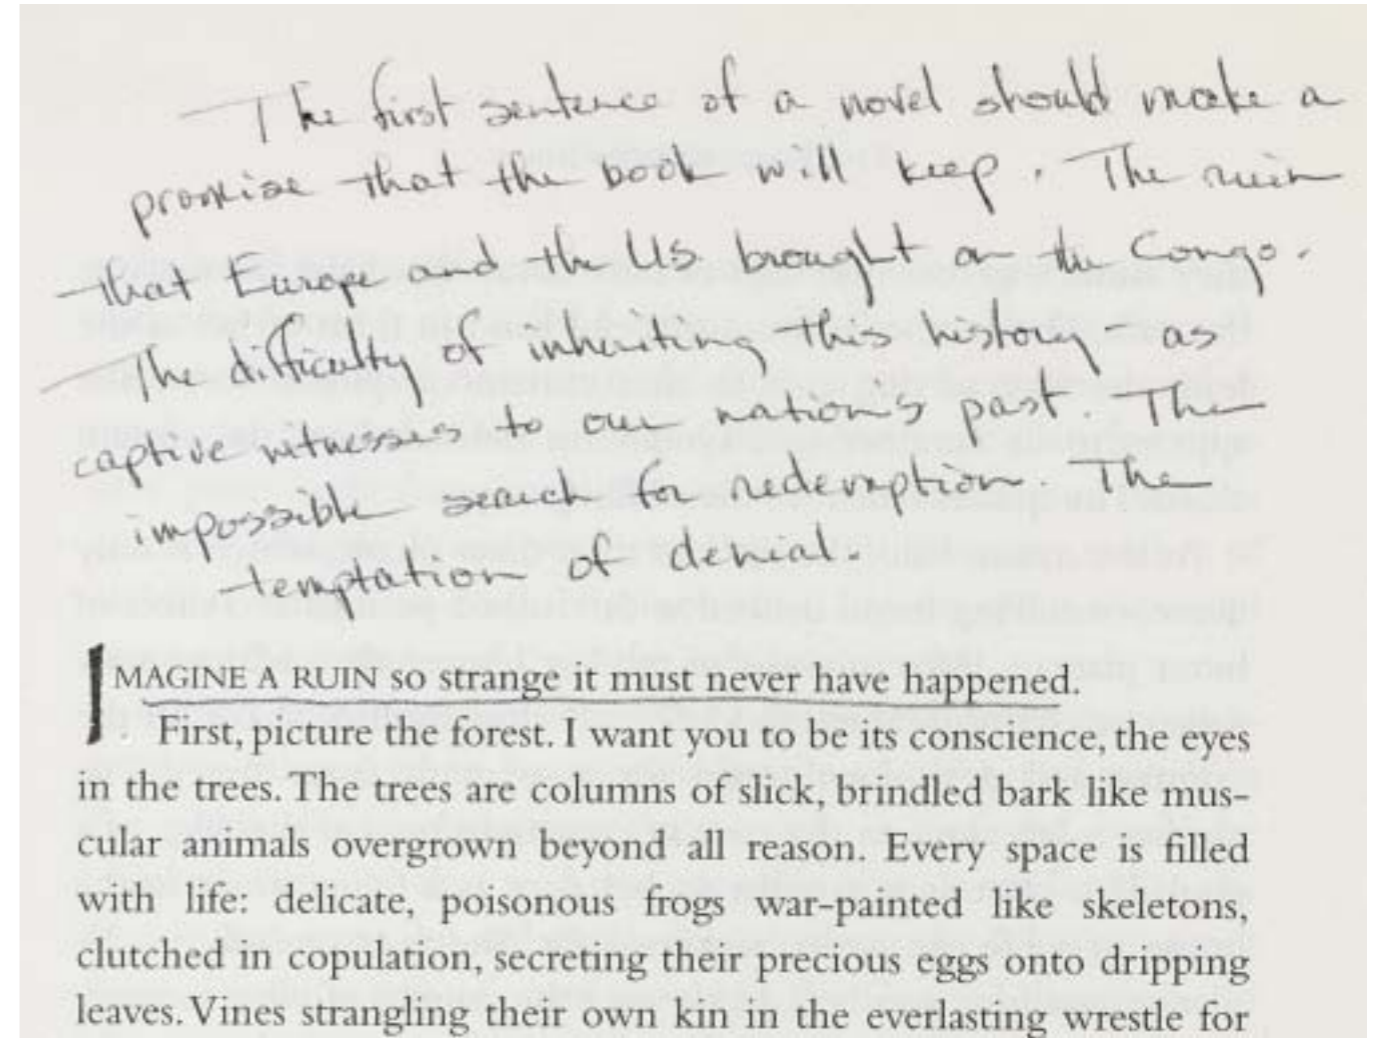 The first sentence of a novel should make a
promise that the book will keep. The ruin
that Europe and the US brought on the Congo.
The difficulty of inheriting this history as
captive witnesses to our nation's past. The
impossible search for redemption. The
temptation of denial.
IMAGINE A RUIN so strange it must never have happened.
First, picture the forest. I want you to be its conscience, the eyes
in the trees. The trees are columns of slick, brindled bark like mus-
cular animals overgrown beyond all reason. Every space is filled
with life: delicate, poisonous frogs war-painted like skeletons,
clutched in copulation, secreting their precious eggs onto dripping
leaves. Vines strangling their own kin in the everlasting wrestle for